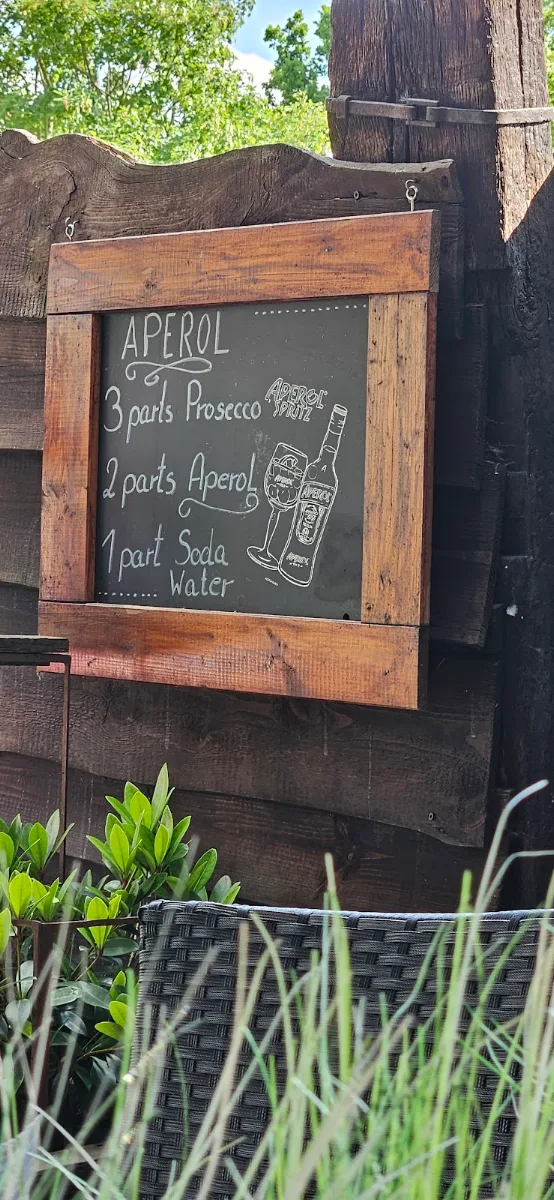 APEROL
3 parts Prosecco
APEROL
SPRITZ
2 parts Aperol
APEROL
APEROL
1 part Soda
Water
APEROL